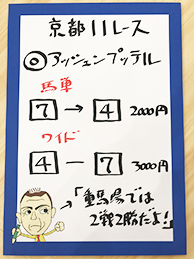 京都11レース
◎アッシェンプッテル
馬単
7→4 2000円
ワイド
4-7 3000円
→「重馬場では
2戦2勝だよ!」